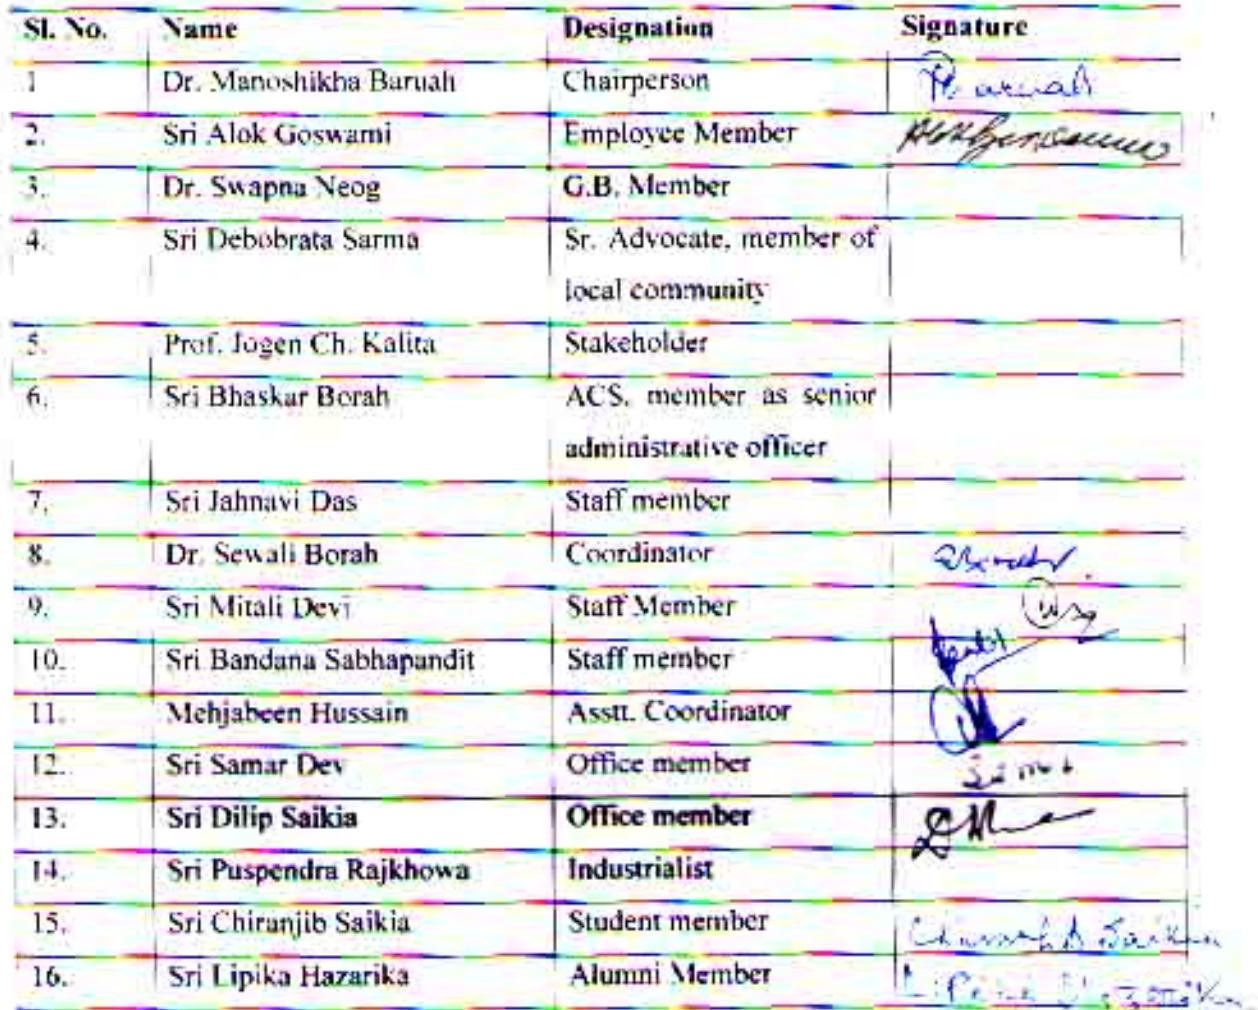 Sl. No. Name Designation Signature
1 Dr. Manoshikha Baruah Chairperson Baruah
2. Sri Alok Goswami Employee Member
3. Dr. Swapna Neog G.B. Member
4. Sri Debobrata Sarma Sr. Advocate, member of
local community
5. Prof. Jogen Ch. Kalita Stakeholder
6. Sri Bhaskar Borah ACS, member as senior
administrative officer
7. Sri Jahnavi Das Staff member
8. Dr. Sewali Borah Coordinator
9. Sri Mitali Devi Staff Member
10. Sri Bandana Sabhapandit Staff member
11. Mehjabeen Hussain Asstt. Coordinator
12. Sri Samar Dev Office member
13. Sri Dilip Saikia Office member
14. Sri Puspendra Rajkhowa Industrialist
15. Sri Chiranjib Saikia Student member Saikia
16. Sri Lipika Hazarika Alumni Member Lipika Hazarika